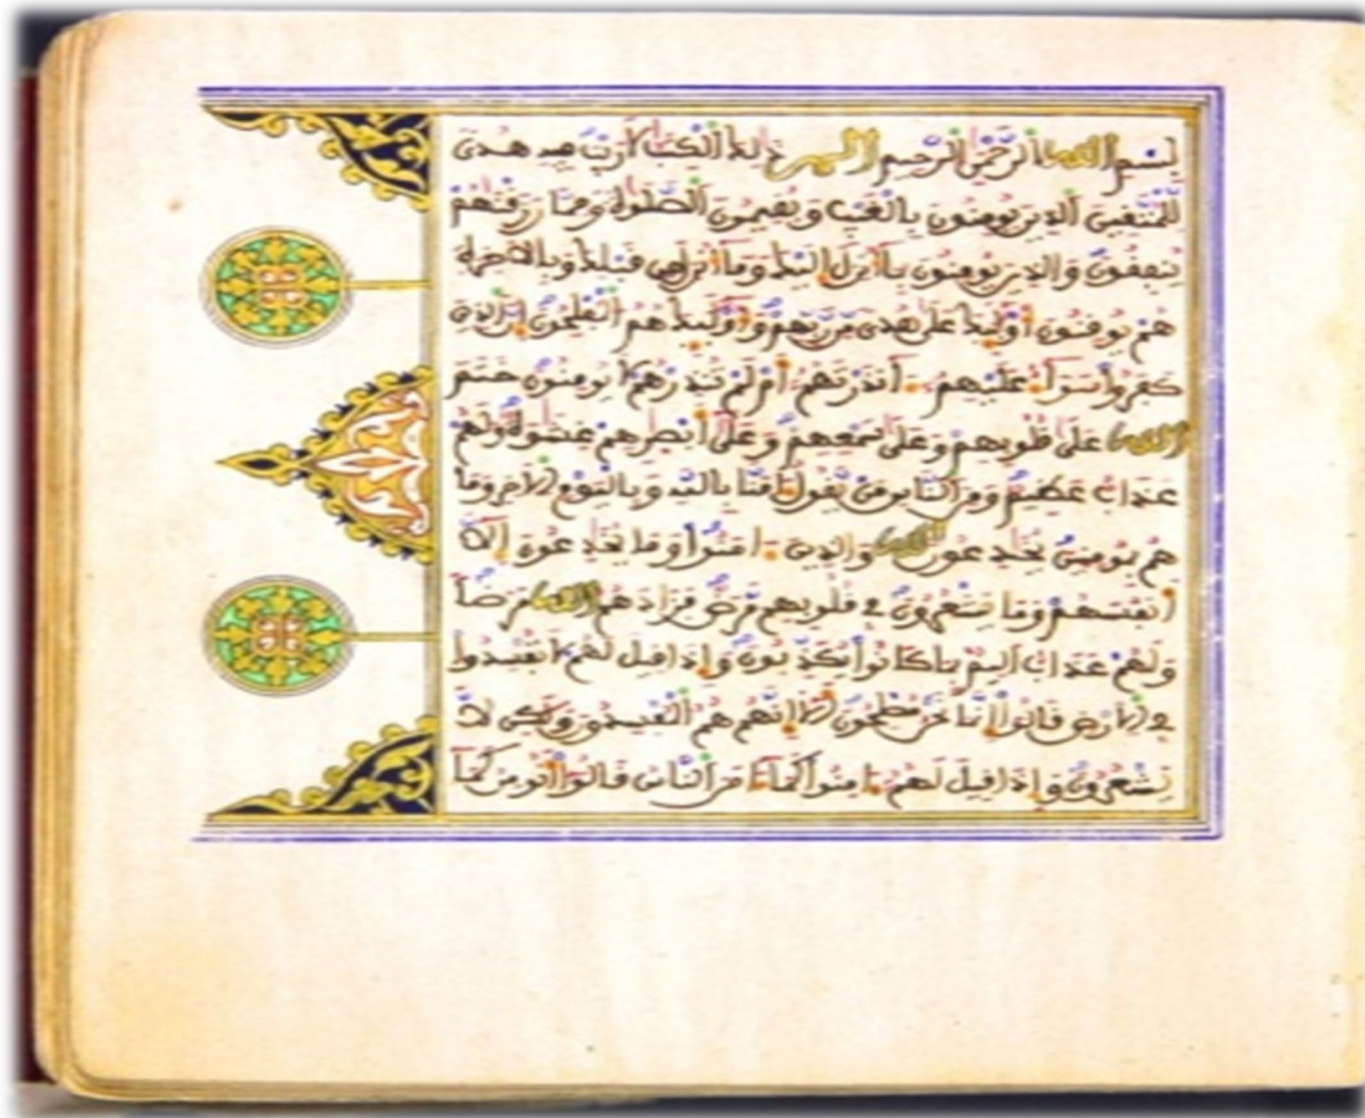 بسم الله الرحمن الرحيم الم ذلك الكتب لا ريب فيه هدى
للمتقين الذين يؤمنون بالغيب ويقيمون الصلوة ومما رزقنهم
ينفقون والذين يؤمنون بما أنزل إليك وما أنزل من قبلك وبالاخرة
هم يوقنون أولئك على هدى من ربهم وأولئك هم المفلحون إن الذين
كفروا سواء عليهم ءأنذرتهم أم لم تنذرهم لا يومنون ختم
الله على قلوبهم وعلى سمعهم وعلى أبصرهم غشوة ولهم
عذاب عظيم ومن الناس من يقول ءامنا بالله وباليوم الاخر وما
هم بمومنين يخدعون الله والذين ءامنوا وما يخدعون إلا
أنفسهم وما يشعرون في قلوبهم مرض فزادهم الله مرضا
ولهم عذاب أليم بما كانوا يكذبون وإذا قيل لهم لا تفسدوا
في الارض قالوا إنما نحن مصلحون ألا إنهم هم المفسدون ولكن لا
يشعرون وإذا قيل لهم ءامنوا كما ءامن الناس قالوا أنومن كما